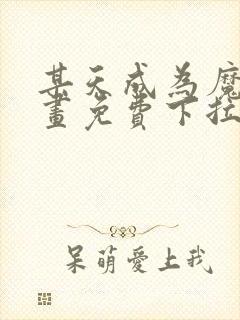 某天成为魔
畫免費下拉
呆萌愛上我